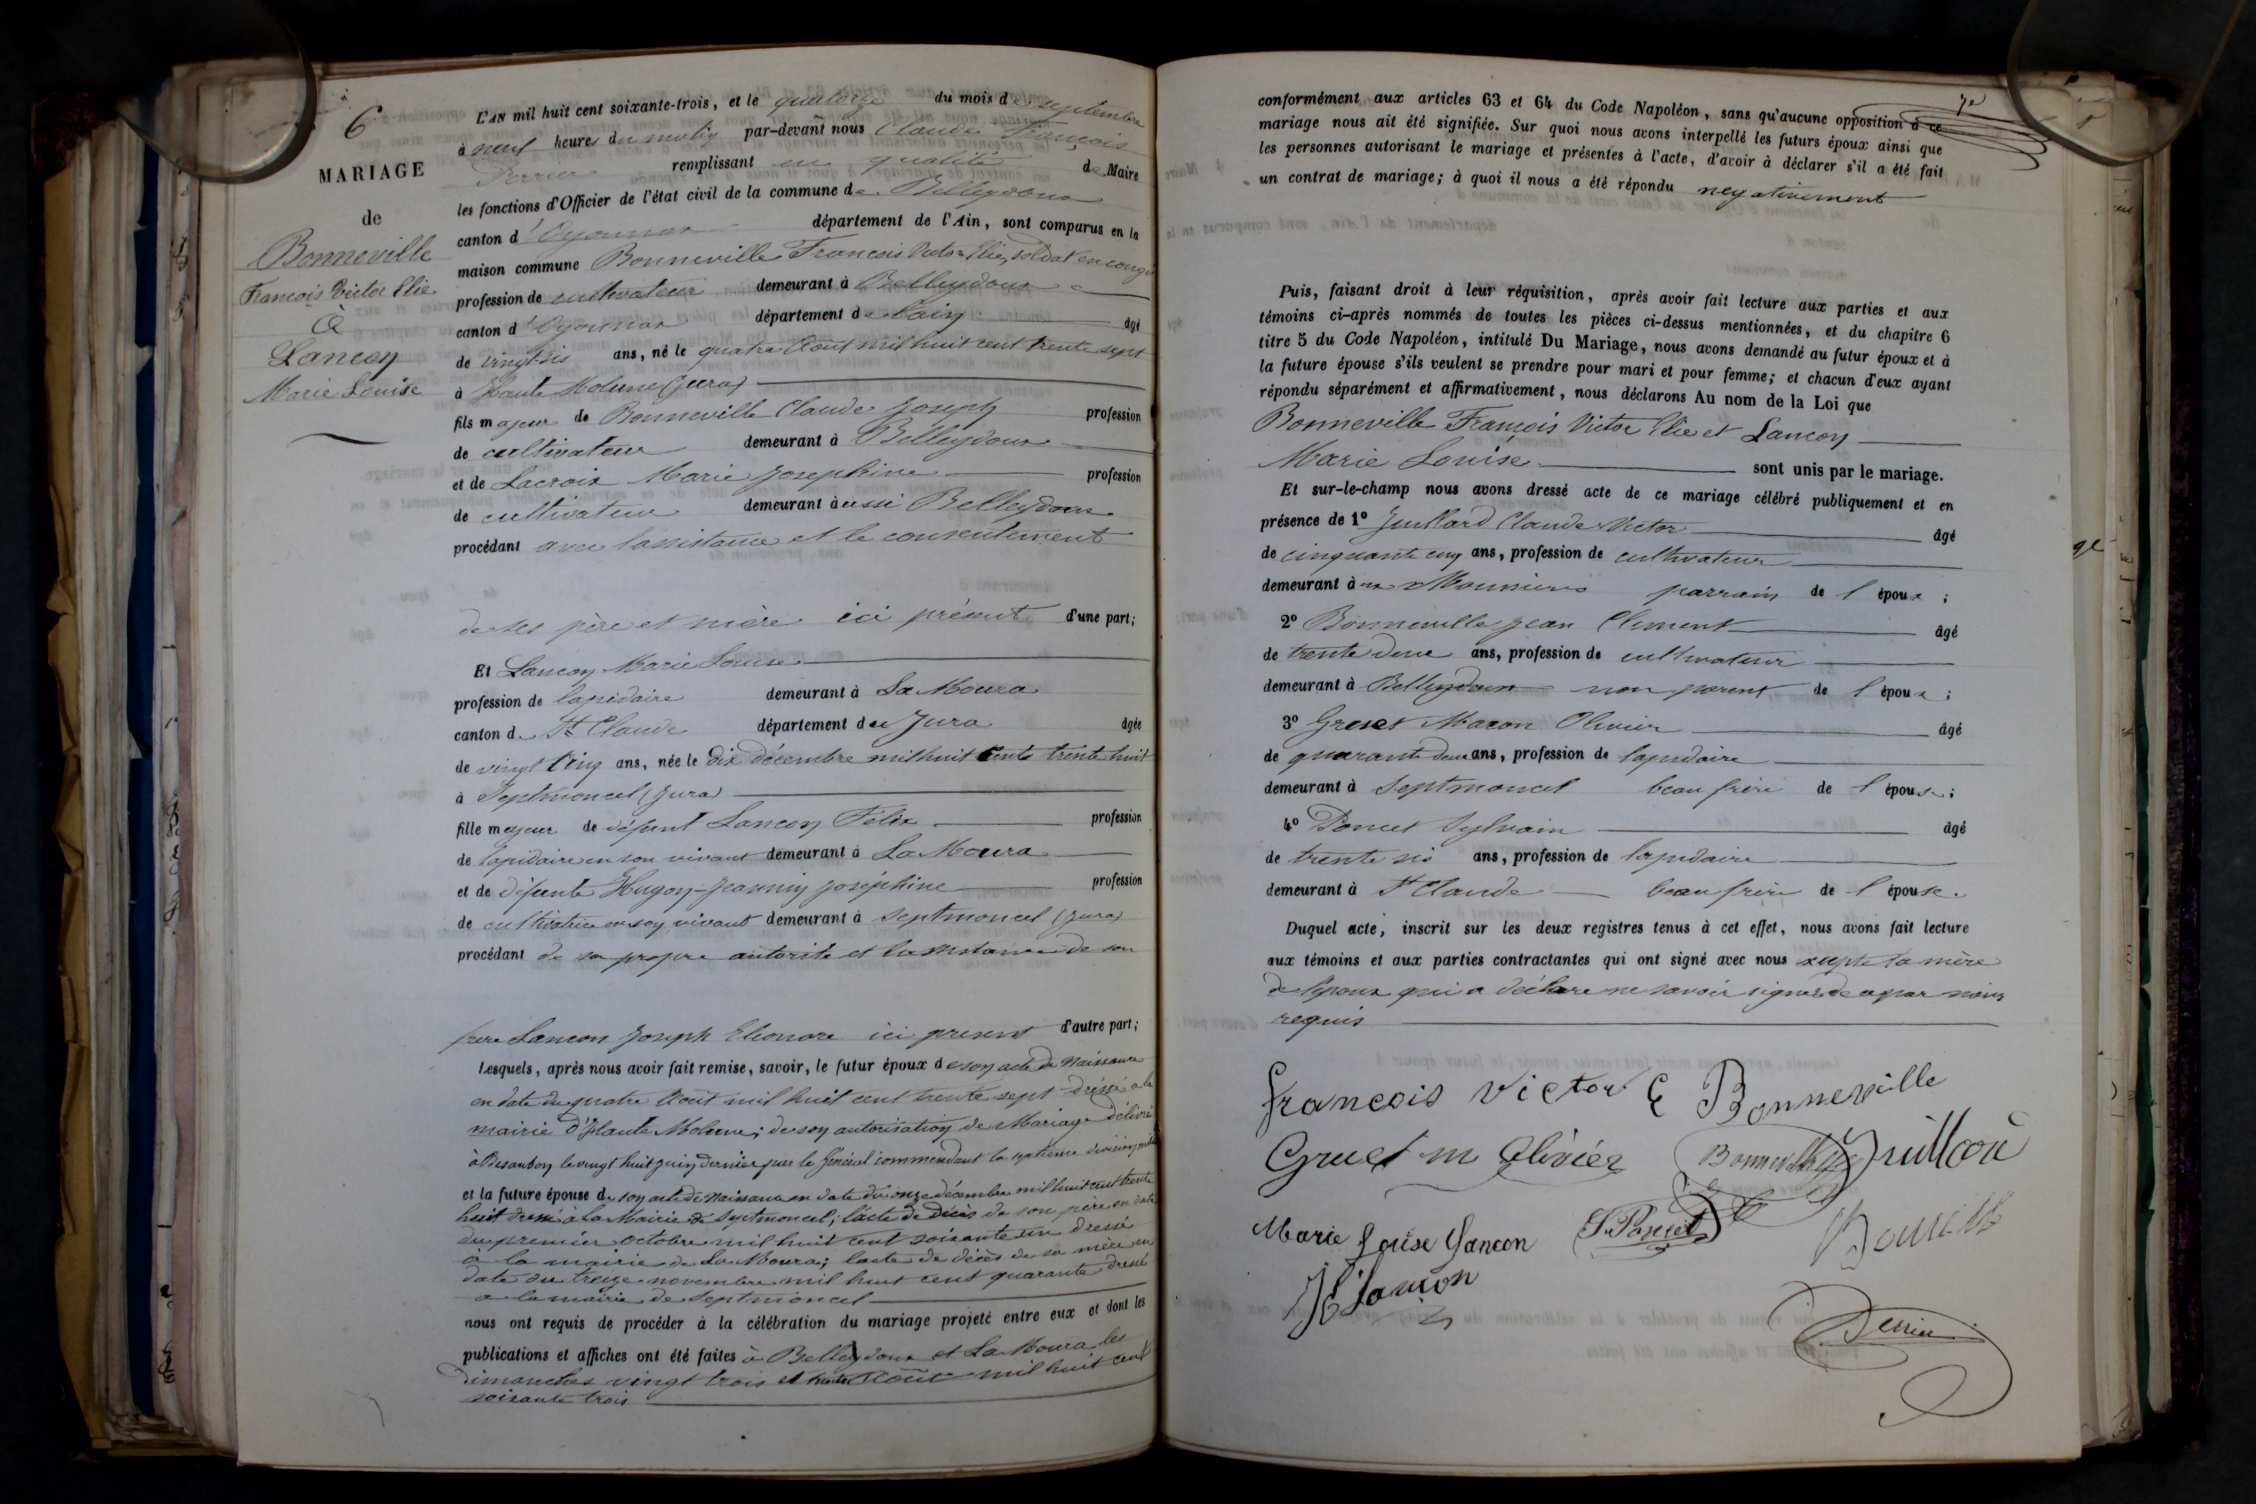 6
MARIAGE
de
Bonneville
François Victor Elie
à
Lançon
Marie Louise
L'AN mil huit cent soixante-trois, et le quatorze du mois de septembre
à neuf heures du matin par-devant nous Claude François
Perrier remplissant en qualité de Maire
les fonctions d'Officier de l'état civil de la commune de Belleydoux
canton d'Oyonnax département de l'Ain, sont comparus en la
maison commune Bonneville François Victor Elie, soldat en congé
profession de cultivateur demeurant à Belleydoux
canton d'Oyonnax département de l'ain âgé
de vingt six ans, né le quatre Août mil huit cent trente sept
à Haute Molune (Jura)
fils majeur de Bonneville Claude Joseph profession
de cultivateur demeurant à Belleydoux
et de Lacroix Marie Josephine profession
de cultivateur demeurant à aussi Belleydoux
procédant avec l'assistance et le consentement
de ses père et mère ici présent d'une part;
Et Lancon Marie Louise
profession de lapidaire demeurant à La Moura
canton de St Claude département du Jura âgée
de vingt cinq ans, née le dix décembre mil huit cent trente huit
à Septmoncel (Jura)
fille majeur de défunt Lancon Félix profession
de lapidaire en son vivant demeurant à La Moura
et de défunte Hugon-Jeannin Joséphine profession
de cultivatrice en son vivant demeurant à Septmoncel (Jura)
procédant de sa propre autorité et l'assistance de son
frère Lancon Joseph Eleonore ici present d'autre part;
Lesquels, après nous avoir fait remise, savoir, le futur époux de son acte de Naissance
en date du quatre Août mil huit cent trente sept dressé à la
mairie d'Haute Molune; de son autorisation de Mariage délivré
à Besançon le vingt huit juin dernier par le Général commandant la septième division
et la future épouse de son acte de Naissance en date du onze décembre mil huit cent trente
huit dressé à la Mairie de Septmoncel; l'acte de Décès de son père en date
du premier octobre mil huit cent soixante un dressé
à la mairie de La Moura; l'acte de décès de sa mère en
date du treize novembre mil huit cent quarante dressé
à la mairie de Septmoncel
nous ont requis de procéder à la célébration du mariage projeté entre eux et dont les
publications et affiches ont été faites à Belleydoux et La Moura les
dimanches vingt trois et trente Août mil huit cent
soixante trois
conformément aux articles 63 et 64 du Code Napoléon, sans qu'aucune opposition à ce
mariage nous ait été signifiée. Sur quoi nous avons interpellé les futurs époux ainsi que
les personnes autorisant le mariage et présentes à l'acte, d'avoir à déclarer s'il a été fait
un contrat de mariage; à quoi il nous a été répondu negativement
Puis, faisant droit à leur réquisition, après avoir fait lecture aux parties et aux
témoins ci-après nommés de toutes les pièces ci-dessus mentionnées, et du chapitre 6
titre 5 du Code Napoléon, intitulé Du Mariage, nous avons demandé au futur époux et à
la future épouse s'ils veulent se prendre pour mari et pour femme; et chacun d'eux ayant
répondu séparément et affirmativement, nous déclarons Au nom de la Loi que
Bonneville François Victor Elie et Lancon
Marie Louise sont unis par le mariage.
Et sur-le-champ nous avons dressé acte de ce mariage célébré publiquement et en
présence de 1º Juillard Claude Victor âgé
de cinquante cinq ans, profession de cultivateur
demeurant à parrain de l'époux;
2º Bonneville Jean Clement âgé
de trente deux ans, profession de cultivateur
demeurant à Belleydoux non parent de l'époux;
3º Grenet Maron Olivier âgé
de quarante deux ans, profession de lapidaire
demeurant à Septmoncel beau frère de l'épouse;
4º Poncet Sylvain âgé
de trente six ans, profession de lapidaire
demeurant à St Claude beau frère de l'épouse.
Duquel acte, inscrit sur les deux registres tenus à cet effet, nous avons fait lecture
aux témoins et aux parties contractantes qui ont signé avec nous excepté la mère
de l'époux qui a déclaré ne savoir signer de ce par nous
requis
francois victor E Bonneville
Gruet m Olivier Bonneville Juillard
Marie Louise Lancon S. Poncet Bonneville
JE Lançon
Perrier